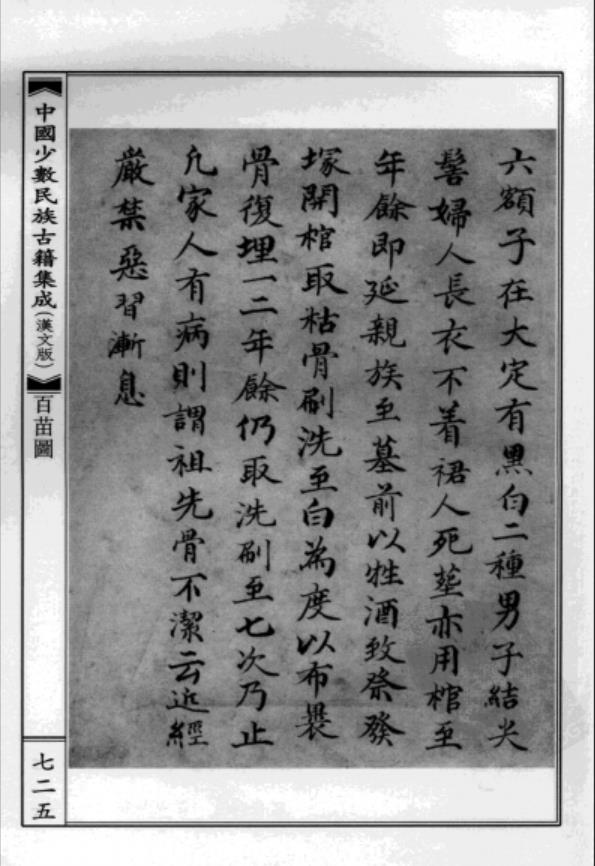 六額子在大定有黑白二種男子結尖
髻婦人長衣不着裙人死塟亦用棺至
年餘即延親族至墓前以牲酒致祭發
塚開棺取枯骨刷洗至白為度以布裹
骨復埋一二年餘仍取洗刷至七次乃止
凡家人有病則謂祖先骨不潔云近經
嚴禁惡習漸息
《中國少數民族古籍集成(漢文版)》
百苗圖
七二五